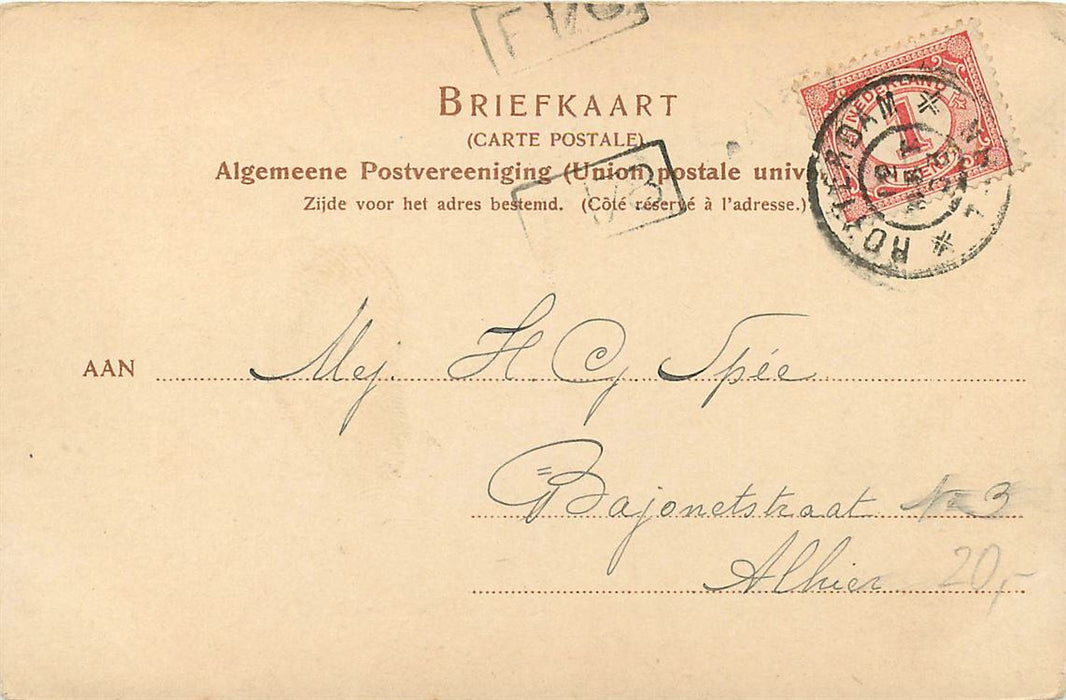 BRIEFKAART
(CARTE POSTALE)
Algemeene Postvereeniging (Union postale univ
Zijde voor het adres bestemd. (Côté réservé à l'adresse.)
NEDERLAND
1
CENT
ROTTERDAM
AAN Mej. H. C. Spée
Bajonetstraat No 3
Alhier 20,-